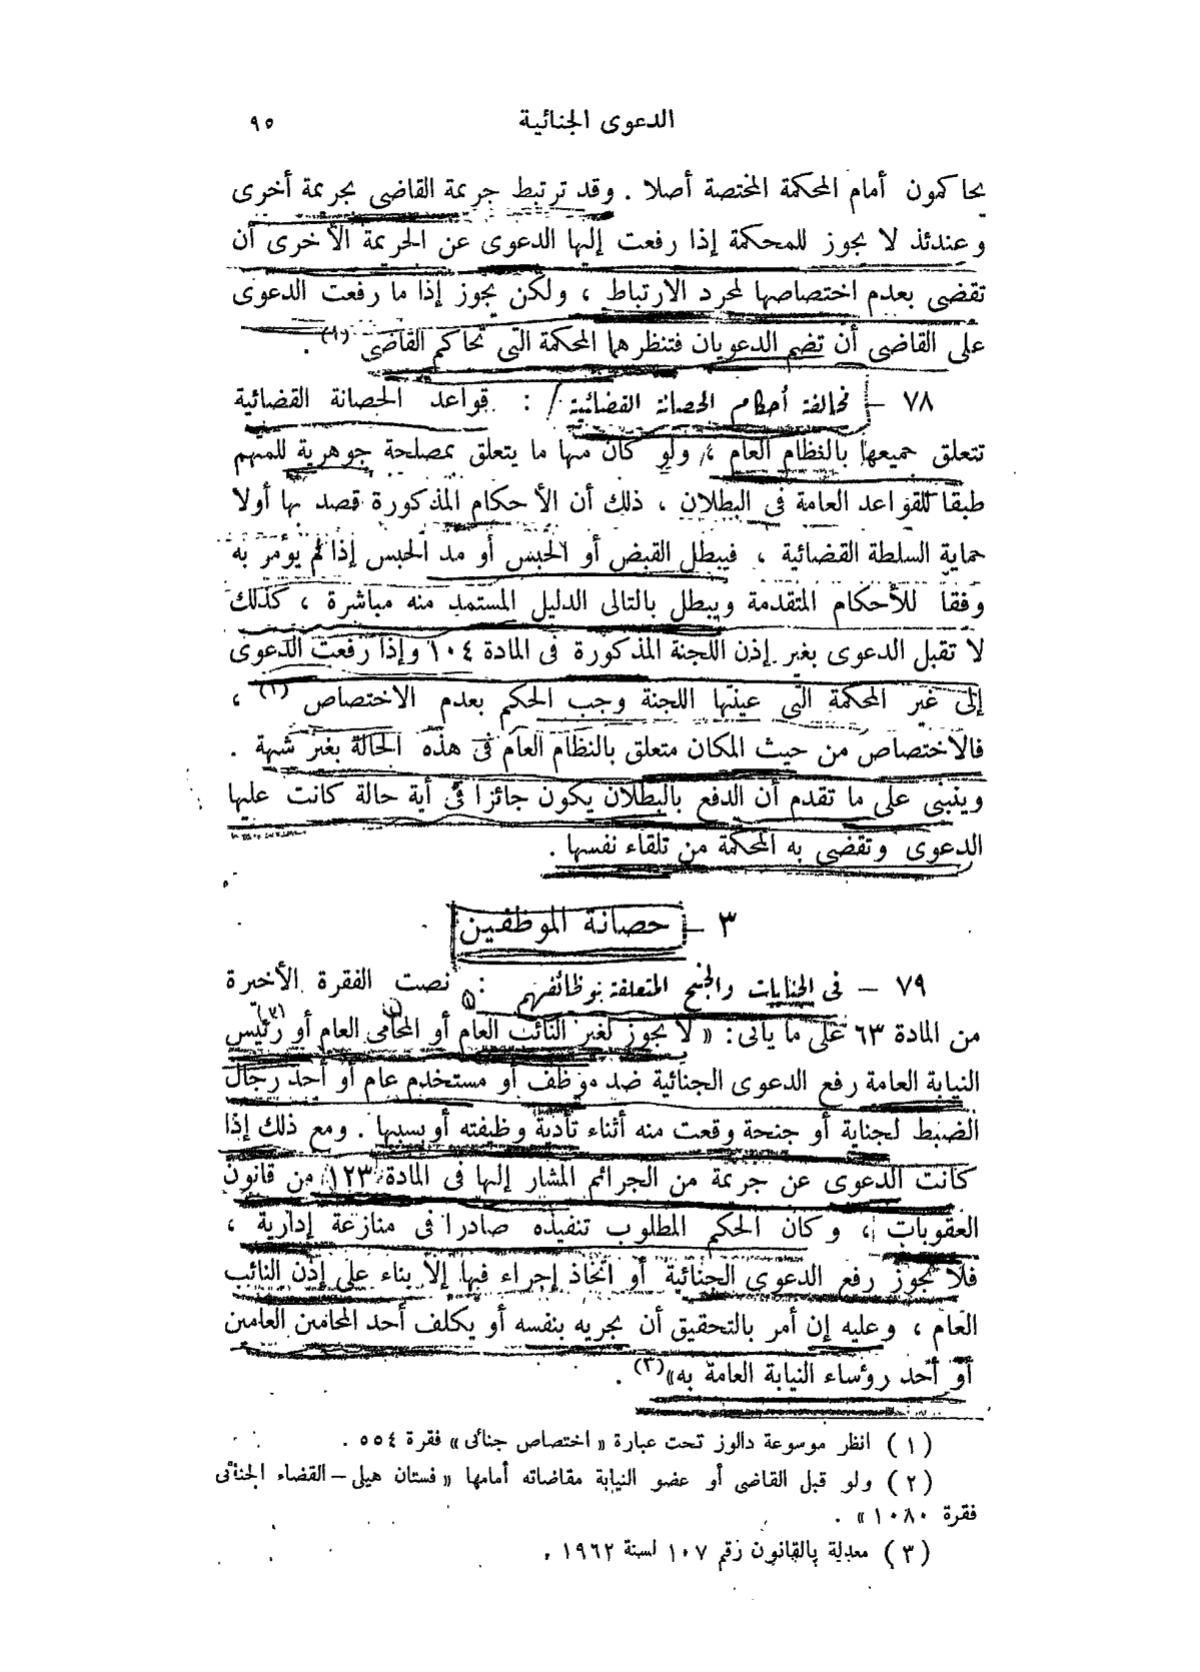 الدعوى الجنائية ٩٥
يحاكمون أمام المحكمة المختصة أصلا . وقد ترتبط جريمة القاضى بجريمة أخرى
وعندئذ لا يجوز للمحكمة إذا رفعت إليها الدعوى عن الجريمة الأخرى أن
تقضى بعدم اختصاصها لمجرد الارتباط ، ولكن يجوز إذا ما رفعت الدعوى
على القاضى أن تضم الدعويان فتنظرهما المحكمة التى تحاكم القاضى (١) .
٧٨ – مخالفة أحكام الحصانة القضائية : قواعد الحصانة القضائية
تتعلق جميعها بالنظام العام ، ولو كان منها ما يتعلق بمصلحة جوهرية للمتهم
طبقا للقواعد العامة فى البطلان ، ذلك أن الأحكام المذكورة قصد بها أولا
حماية السلطة القضائية ، فيبطل القبض أو الحبس أو مد الحبس إذا لم يؤمر به
وفقا للأحكام المتقدمة ويبطل بالتالى الدليل المستمد منه مباشرة ، كذلك
لا تقبل الدعوى بغير إذن اللجنة المذكورة فى المادة ١٠٤ وإذا رفعت الدعوى
إلى غير المحكمة التى عينتها اللجنة وجب الحكم بعدم الاختصاص (٢) ،
فالاختصاص من حيث المكان متعلق بالنظام العام فى هذه الحالة بغير شبهة .
وينبنى على ما تقدم أن الدفع بالبطلان يكون جائزا فى أية حالة كانت عليها
الدعوى وتقضى به المحكمة من تلقاء نفسها .
٣ – حصانة الموظفين
٧٩ – فى الجنايات والجنح المتعلقة بوظائفهم : نصت الفقرة الأخيرة
من المادة ٦٣ على ما يأتى: « لا يجوز لغير النائب العام أو المحامى العام أو رئيس
النيابة العامة رفع الدعوى الجنائية ضد موظف أو مستخدم عام أو أحد رجال
الضبط لجناية أو جنحة وقعت منه أثناء تأدية وظيفته أو بسببها . ومع ذلك إذا
كانت الدعوى عن جريمة من الجرائم المشار إليها فى المادة ١٢٣ من قانون
العقوبات ، وكان الحكم المطلوب تنفيذه صادرا فى منازعة إدارية ،
فلا يجوز رفع الدعوى الجنائية أو اتخاذ إجراء فيها إلا بناء على إذن النائب
العام ، وعليه إن أمر بالتحقيق أن يجريه بنفسه أو يكلف أحد المحامين العامين
أو أحد رؤساء النيابة العامة به» (٣) .
(١) انظر موسوعة دالوز تحت عبارة « اختصاص جنائى » فقرة ٥٥٤ .
(٢) ولو قبل القاضى أو عضو النيابة مقاضاته أمامها « فستان هيلى – القضاء الجنائى
فقرة ١٠٨٠ » .
(٣) معدلة بالقانون رقم ١٠٧ لسنة ١٩٦٢ .